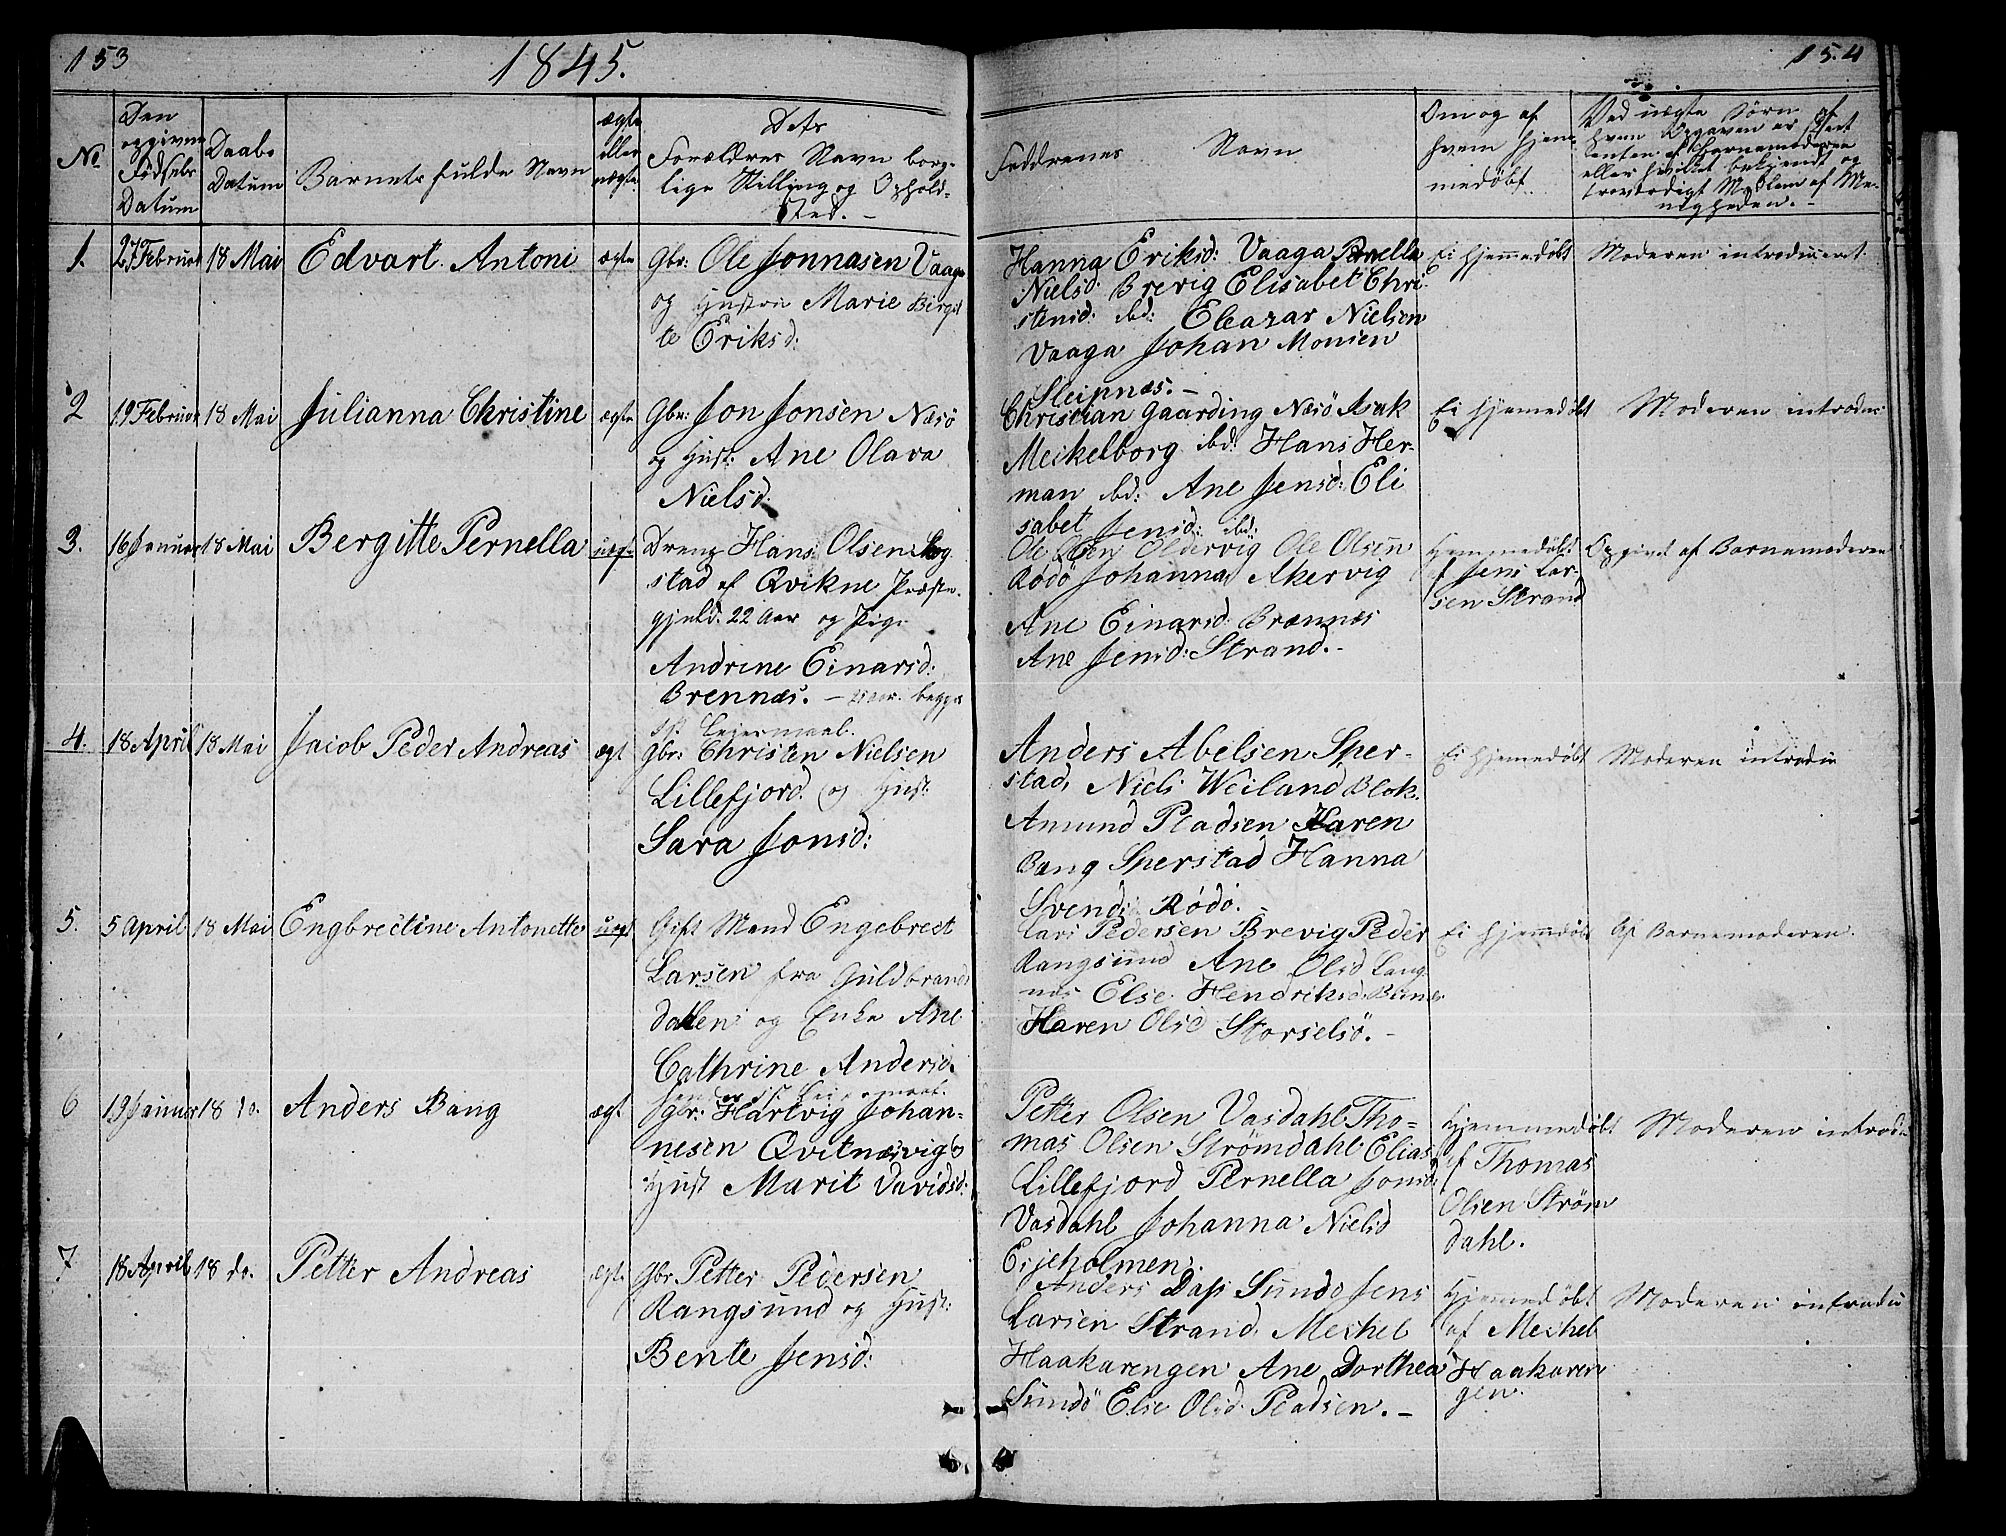 153
1845.
154
No
Den
opgivne
Fødsels
Datum
Daabs
Datum
Barnets fulde Navn
ægte
eller
uægte
Dets
Forældres Navn borg-
lige Stilling og Ophold-
sted. -
Faddrenes Navn
Om og af
hvem hjem-
medøbt.
Ved uægte Børn af
hvem Opgaven er skeet
enten af Barnemoderen
eller hvilket bekjendt og
troværdigt Medlem af Me-
nigheden. -
1.
27 Februar
18 Mai
Edvart Antoni
ægte
Gbr: Ole Jonnasen Vaaga
og Hustru Marie Birgit
te Eriksd:
Hanna Eriksd: Vaaga Pernella
Nielsd: Brevig Elisabet Chri
stensd: ibd: Eleazar Nielsen
Vaaga Johan Monsen
Sleipnæs. -
Ei hjemmedøbt
Moderen introduceret
2
19 Februar
18 Mai
Julianna Christine
ægte
Gbr: Jon Jonsen Næsø
og Hust: Ane Olava
Nielsd:
Christian Gaarding Næsø Isak
Meikelborg ibd: Hans Her-
man ibd: Ane Jensd: Eli
sabet Jensd: ibd:
Ei hjemedøbt
Moderen introdu
3.
16 Januar
18 Mai
Bergitte Pernella
uægt
Dreng Hans Olsen
stad af Qvikne Præste-
gjeld. 22 Aar og Pige
Andrine Einarsd:
Brennæs. - begges
1ste Leiermaal.
Ole Olsen Oldervig Ole Olsen
Rødø Johanna Akervig
Ane Einarsd: Brænnæs
Ane Jensd: Strand. -
Hjemmedøbt
af Jens Lar-
sen Strand
Opgivet af Barnemoderen
4.
18 April
18 Mai
Jacob Peder Andreas
ægt
Gbr: Christen Nielsen
Lillefjord og Hust:
Sara Jonsd:
Anders Abelsen Sper-
stad, Niels Weiland Blok.
Amund Pladsen Karen
Bang Sperstad Hanna
Svendsd: Rødø. -
Ei hjemedøbt
Moderen introdu
5.
5 April
18 Mai
Engbrectine Antonette
uægt
Gift Mand Engebrect
Larsen fra Guldbrands
dalen og Enke Ane
Cathrine Andersd:
Lars Pedersen Brevig Peder
Rangsund Ane Olsd Lang
næs Else Hendriksd:
Karen Olsd Storselsø. -
Ei hjemdøbt
Barnemoderen.
6
19 Januar
18 do.
Anders Bang
ægt.
gbr: Hartvig Johan-
nesen Qvitnæsvig og
Hust Marit Davidsd:
Petter Olsen Vasdahl Tho-
mas Olsen Strømdahl Elias
Lillefjord Pernella Jonsd
Vasdahl Johanna Nielsd
Erjeholmen.
Hjemmedøbt
af Thomas
Olsen Strøm
dahl.
Moderen introdu
7
18 April
18 do.
Petter Andreas
ægt.
Gbr. Petter Pedersen
Rangsund og Hust:
Bente Jensd:
Anders Dass Sundø Jens
Larsen Strand Meshel
Haakarengen Ane Dorthea
Sundø Else Olsd. Pladsen. -
Hjemmedøbt
af Meshel
Haakaren
gen.
Moderen introdu